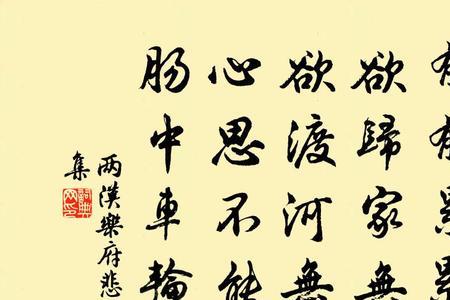 欲歸家無
欲渡河無
心思不能
腸中車輪
兩漢樂府悲
集